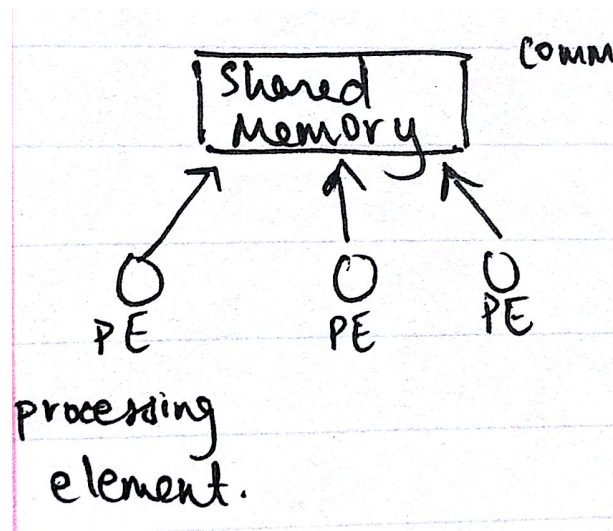 comm
Shared
Memory
PE PE PE
processing
element.